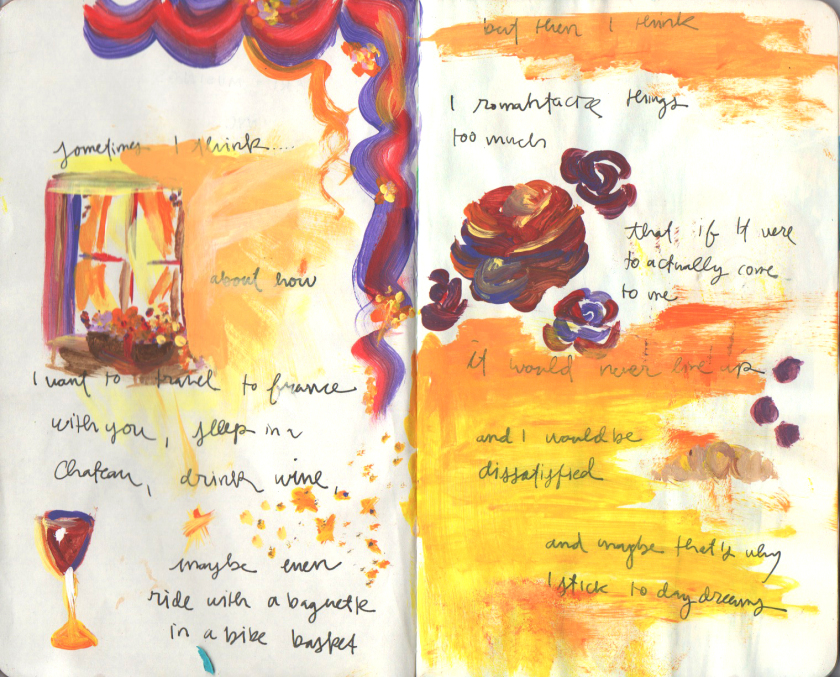 sometimes I think....
about how
I want to travel to france
with you, sleep in a
Chateau, drink wine,
maybe even
ride with a baguette
in a bike basket
but then I think
I romanticize things
too much
that if it were
to actually come
to me
it would never live up
and I would be
dissatisfied
and maybe that's why
I stick to daydreams